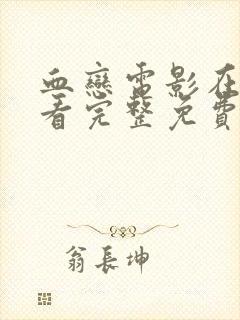 血戀電影在
看完整免費
翁長坤